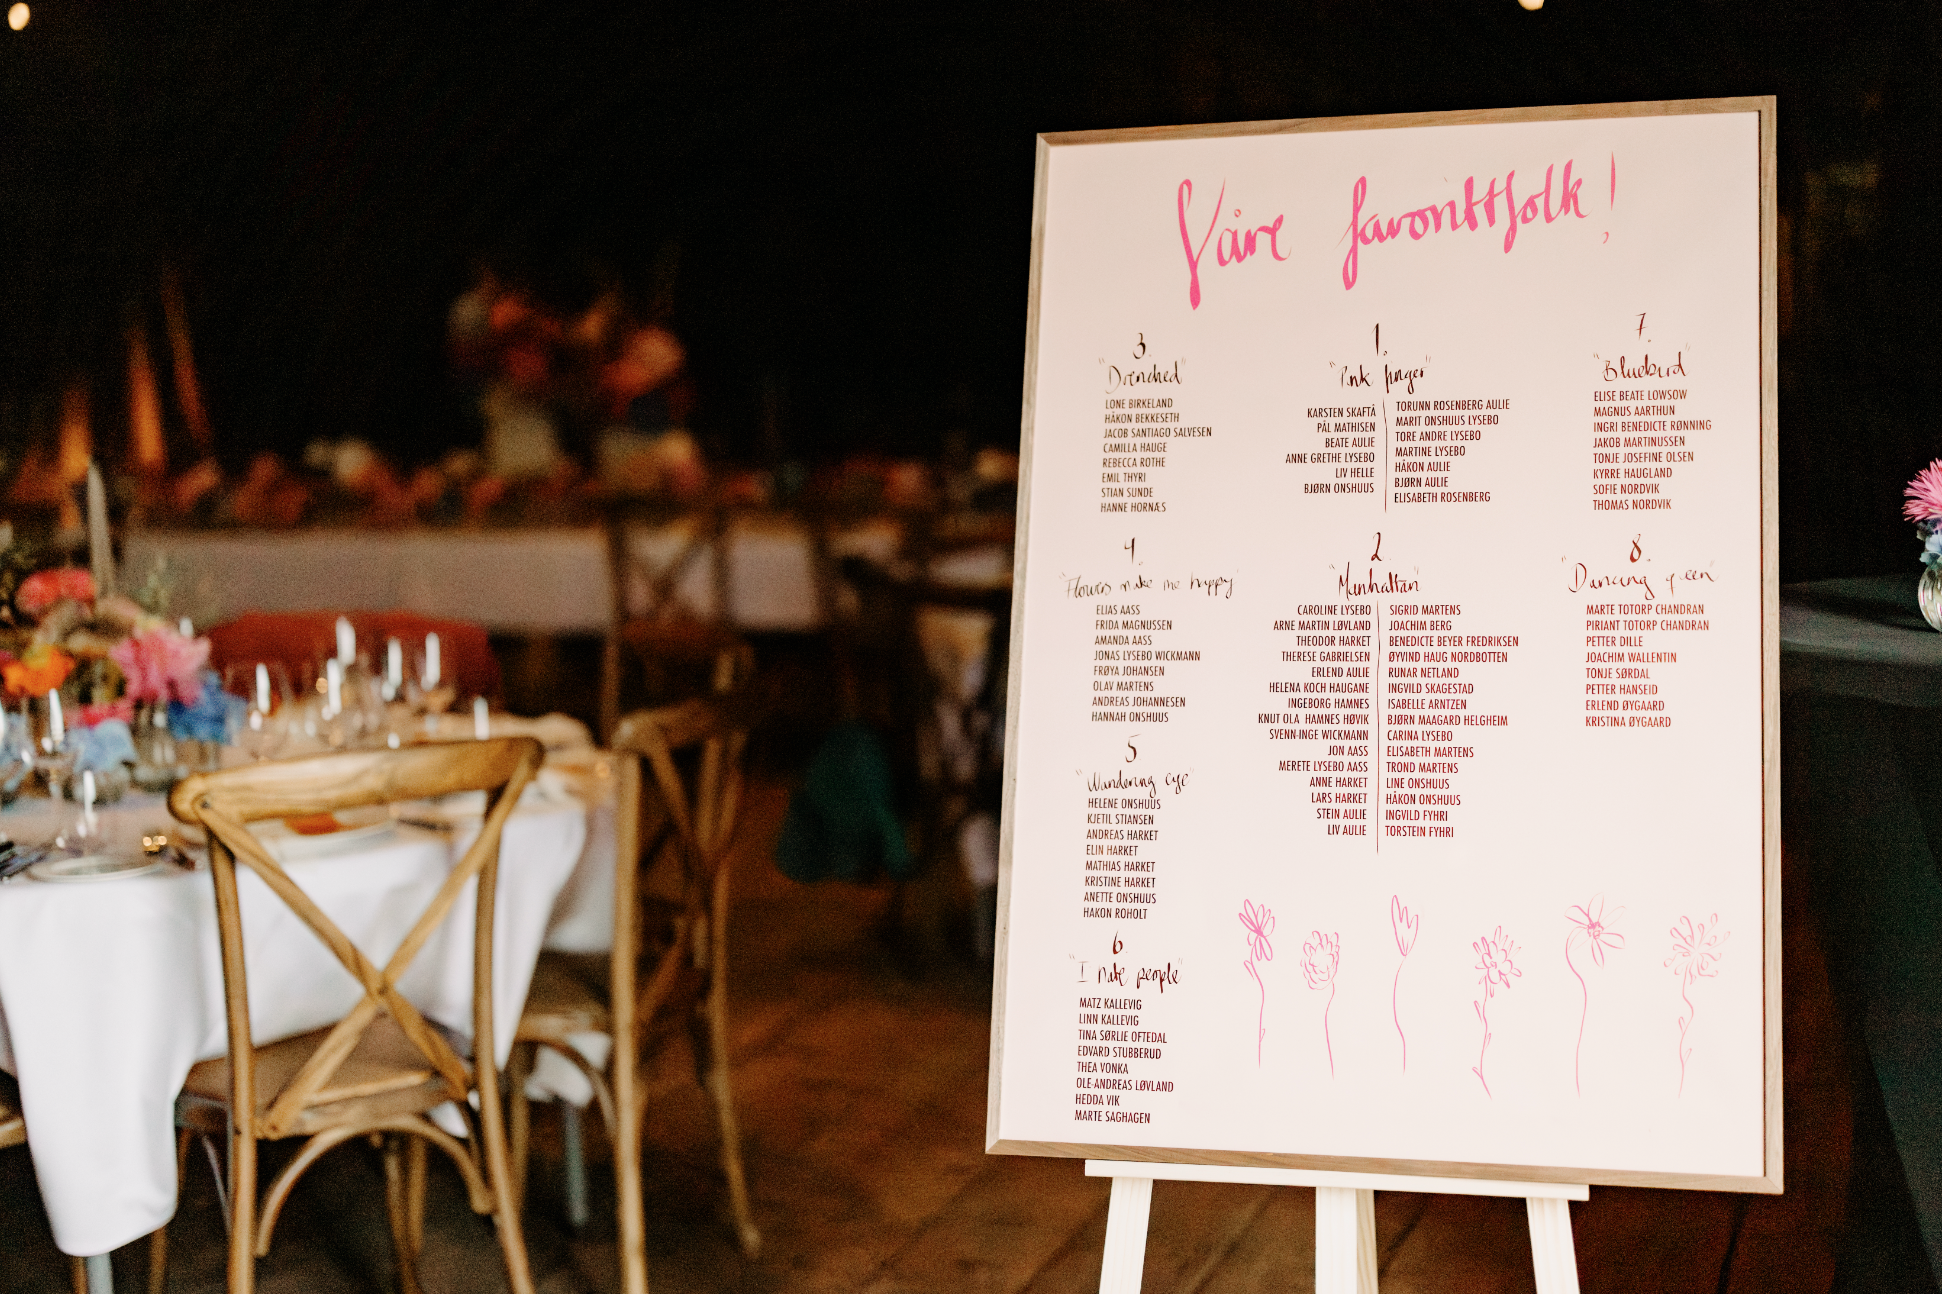 Våre favorittfolk!
3.
"Drenched"
LONE BIRKELAND
HÅKON BEKKESETH
JACOB SANTIAGO SALVESEN
CAMILLA HAUGE
REBECCA ROTHE
EMIL THYRI
STIAN SUNDE
HANNE HORNÆS
4.
"Flowers make me happy"
ELIAS AASS
FRIDA MAGNUSSEN
AMANDA AASS
JONAS LYSEBO WICKMANN
FRØYA JOHANSEN
OLAV MARTENS
ANDREAS JOHANNESEN
HANNAH ONSHUUS
5
"Wandering eye"
HELENE ONSHUUS
KJETIL STIANSEN
ANDREAS HARKET
ELIN HARKET
MATHIAS HARKET
KRISTINE HARKET
ANETTE ONSHUUS
HAKON ROHOLT
6.
"I hate people"
MATZ KALLEVIG
LINN KALLEVIG
TINA SØRLIE OFTEDAL
EDVARD STUBBERUD
THEA VONKA
OLE-ANDREAS LØVLAND
HEDDA VIK
MARTE SAGHAGEN
1.
"Pink finger"
KARSTEN SKAFTÅ
PÅL MATHISEN
BEATE AULIE
ANNE GRETHE LYSEBO
LIV HELLE
BJØRN ONSHUUS
TORUNN ROSENBERG AULIE
MARIT ONSHUUS LYSEBO
TORE ANDRE LYSEBO
MARTINE LYSEBO
HÅKON AULIE
BJØRN AULIE
ELISABETH ROSENBERG
2
"Manhattan"
CAROLINE LYSEBO
ARNE MARTIN LØVLAND
THEODOR HARKET
THERESE GABRIELSEN
ERLEND AULIE
HELENA KOCH HAUGANE
INGEBORG HAMNES
KNUT OLA HAMNES HØVIK
SVENN-INGE WICKMANN
JON AASS
MERETE LYSEBO AASS
ANNE HARKET
LARS HARKET
STEIN AULIE
LIV AULIE
SIGRID MARTENS
JOACHIM BERG
BENEDICTE BEYER FREDRIKSEN
ØYVIND HAUG NORDBOTTEN
RUNAR NETLAND
INGVILD SKAGESTAD
ISABELLE ARNTZEN
BJØRN MAAGARD HELGHEIM
CARINA LYSEBO
ELISABETH MARTENS
TROND MARTENS
LINE ONSHUUS
HÅKON ONSHUUS
INGVILD FYHRI
TORSTEIN FYHRI
7.
"Bluebird"
ELISE BEATE LOWSOW
MAGNUS AARTHUN
INGRI BENEDICTE RØNNING
JAKOB MARTINUSSEN
TONJE JOSEFINE OLSEN
KYRRE HAUGLAND
SOFIE NORDVIK
THOMAS NORDVIK
8.
"Dancing queen"
MARTE TOTORP CHANDRAN
PIRIANT TOTORP CHANDRAN
PETTER DILLE
JOACHIM WALLENTIN
TONJE SØRDAL
PETTER HANSEID
ERLEND ØYGAARD
KRISTINA ØYGAARD